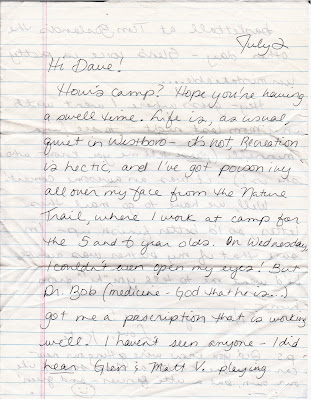 July 2
Hi Dave!
How's camp? Hope you're having
a swell time. Life is, as usual,
quiet in Westboro - it's not, Recreation
is hectic, and I've got poison ivy
all over my face from the Nature
Trail, where I work at camp for
the 5 and 6 year olds. On Wednesday,
I couldn't even open my eyes! But
Dr. Bob (medicine - God that he is...)
got me a pascription that is working
well. I haven't seen anyone - I did
hear Glen & Matt V. playing